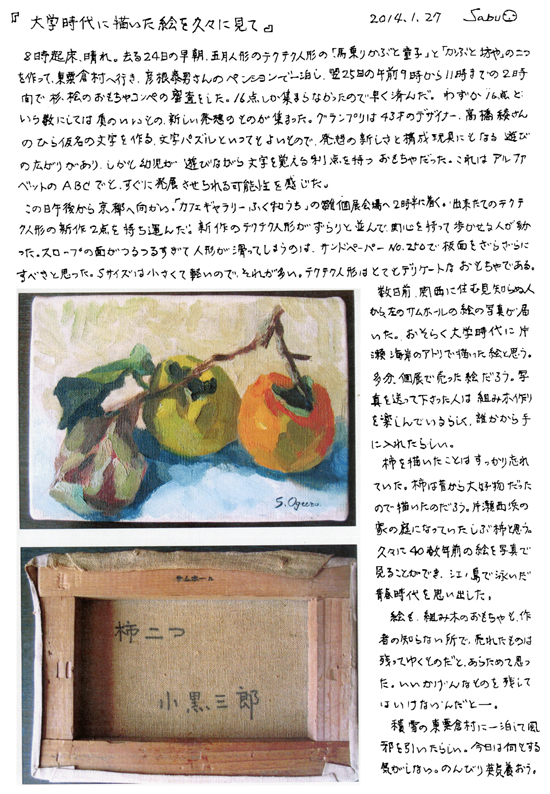 『大学時代に描いた絵を久々に見て』 2014.1.27 Sabu
8時起床、晴れ。去る24日の早朝、五月人形のテクテク人形の「馬乗りかぶと童子」と「かぶと坊や」の二つ
を作って、東粟倉村へ行き、彦根泰男さんのペンションで一泊し、翌25日の午前9時から11時までの2時
間で杉・桧のおもちゃコンペの審査をした。16点しか集まらなかったので早く済んだ。わずか16点と
いう数にしては質のいいもの、新しい発想のものが集まった。グランプリは43才のデザイナー、髙橋綾さん
のひら仮名の文字を作る、文字パズルといってもよいもので、発想の新しさと構成玩具にもなる遊び
の広がりがあり、しかも幼児が遊びながら文字を覚える利点を持つおもちゃだった。これはアルファ
ベットのABCでも、すぐに発展させられる可能性を感じた。
この日午後から京都へ向かい、「カフェギャラリーふくねうち」の雛個展会場へ2時半に着く。出来たてのテクテ
ク人形の新作2点を持ち運んだ。新作のテクテク人形がずらりと並んで、関心を持って歩かせる人が多か
った。スロープの面がつるつるすぎて人形が滑ってしまうのは、サンドペーパーNo.250で板面をざらざらに
すべきと思った。Sサイズは小さくて軽いので、それが多い。テクテク人形はとてもデリケートなおもちゃである。
数日前、関西に住む見知らぬ人
から左のサムホールの絵の写真が届
いた。おそらく大学時代に片
瀬海岸のアトリエで描いた絵と思う。
多分、個展で売った絵だろう。写
真を送って下さった人は組み木作り
を楽しんでいるらしく、誰かから手
に入れたらしい。
柿を描いたことはすっかり忘れ
ていた。柿は昔から大好物だった
ので描いたのだろう。片瀬西浜の
家の庭になっていたしぶ柿と思う。
久々に40数年前の絵を写真で
見ることができ、江ノ島で泳いだ
青春時代を思い出した。
絵も、組み木のおもちゃも、作
者の知らない所で、売れたものは
残ってゆくものだと、あらためて思
った。いいかげんなものを残して
はいけないんだと―。
積雪の東粟倉村に一泊して風
邪を引いたらしい。今日は何もする
気がしない。のんびり英気養おう。
S. Oguro
サムホール
柿二つ
小黒三郎